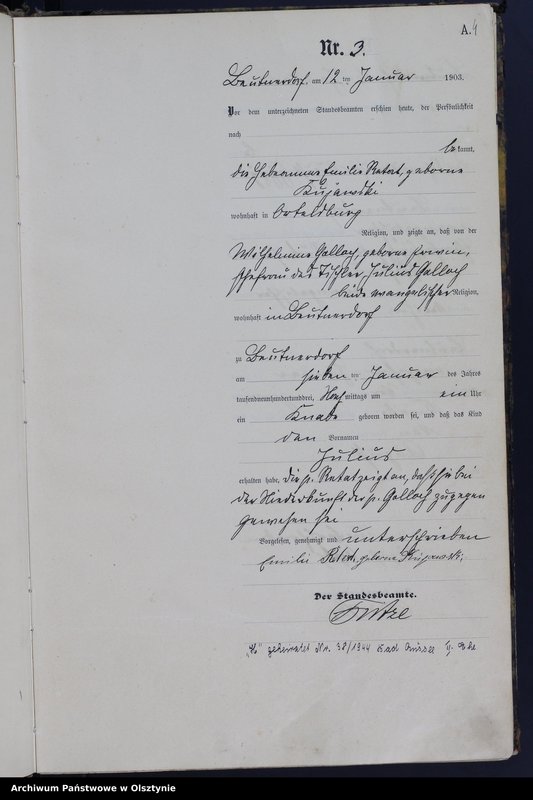 A. 4
Nr. 3.
Beutnerdorf am 12 ten Januar 1903.
Vor dem unterzeichneten Standesbeamten erschien heute, der Persönlichkeit
nach
bekannt,
die Hebeamme Emilie Retat, geborene
Kujawski
wohnhaft in Ortelsburg
Religion, und zeigte an, daß von der
Wilhelmine Galloch, geborene
Ehefrau des Tischler, Julius Galloch
beide evangelischer Religion,
wohnhaft in Beutnerdorf
zu Beutnerdorf
am sieben ten Januar des Jahres
tausendneunhundertunddrei, Nachmittags um ein Uhr
ein Knabe geboren worden sei, und daß das Kind
den Vornamen
Julius
erhalten habe, die p. Retat zeigt an, daß sie bei
der Niederkunft der p. Galloch zugegen
gewesen sei
Vorgelesen, genehmigt und unterschrieben
Emilie Retat, geborne Kujawski,
Der Standesbeamte.
geheiratet Nr. 38/1944 Bad
Archiwum Państwowe w Olsztynie